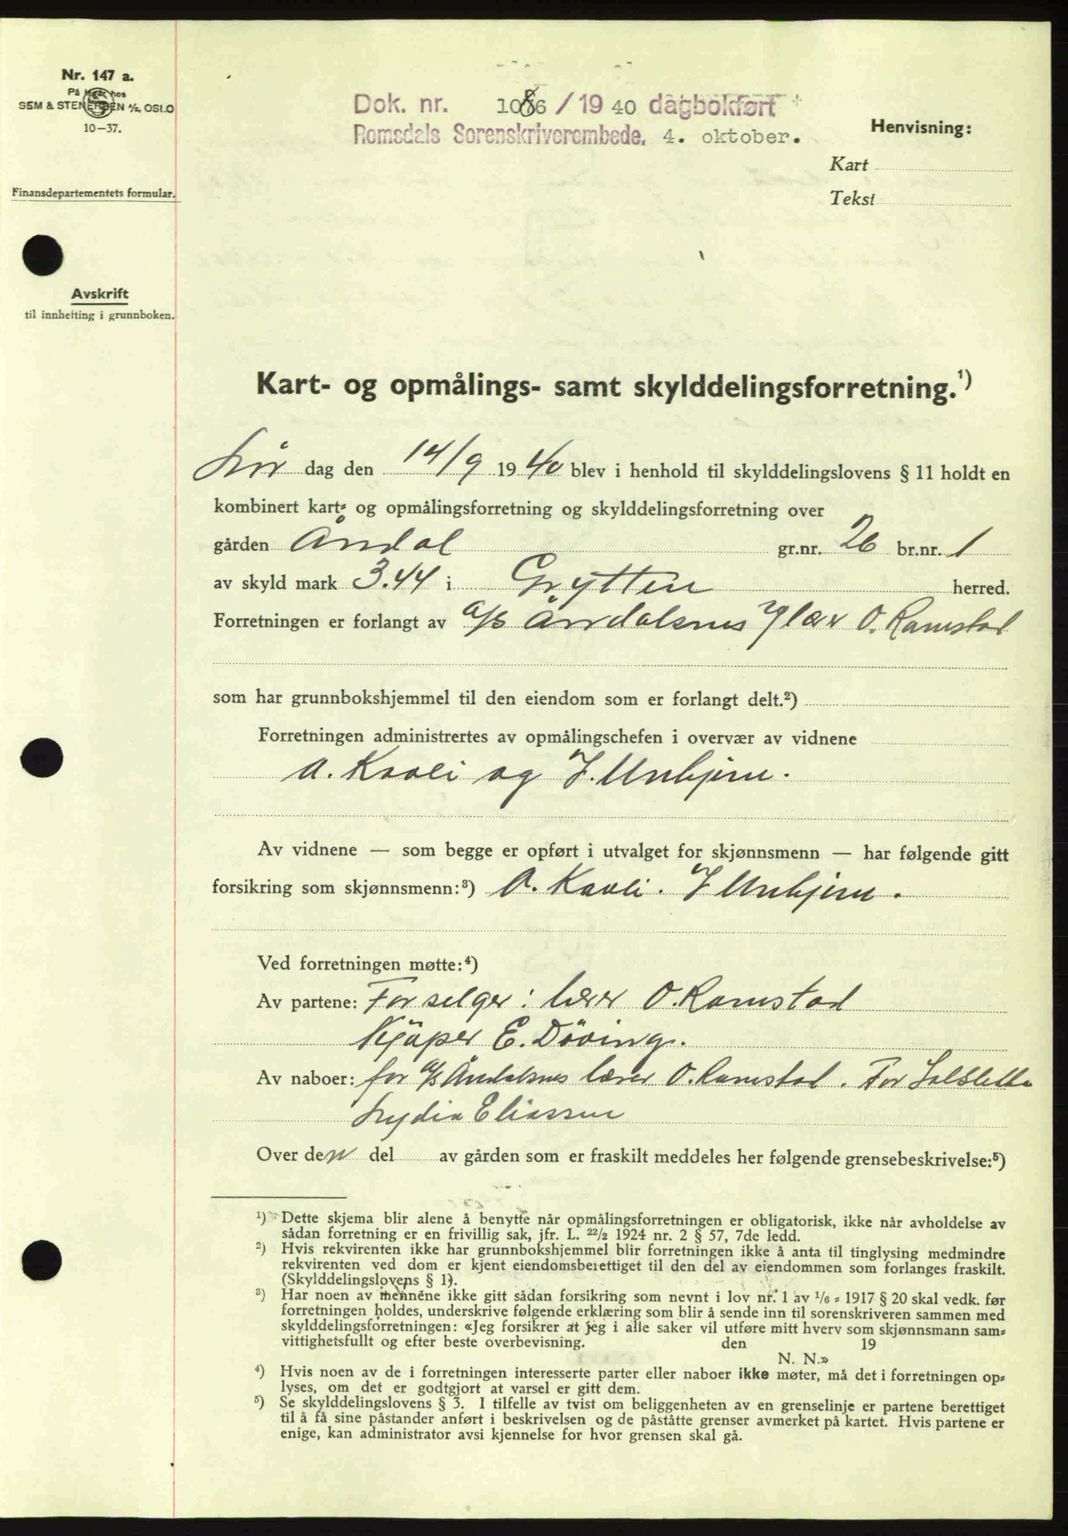 Nr. 147 a.
På lager hos
SEM & STENERSEN A/S, OSLO
10-37.
Finansdepartementets formular.
Avskrift
til innhefting i grunnboken.
Dok. nr. 1086/1940 dagbokført
Romsdals Sorenskriverembede, 4. oktober.
Henvisning:
Kart
Tekst
Kart- og opmålings- samt skylddelingsforretning.¹)
Lør dag den 14/9 1940 blev i henhold til skylddelingslovens § 11 holdt en
kombinert kart- og opmålingsforretning og skylddelingsforretning over
gården Åndal gr.nr. 26 br.nr. 1
av skyld mark 3.44 i Grytten herred.
Forretningen er forlangt av a/s Åndalsnes v/ lær O. Ramstad
som har grunnbokshjemmel til den eiendom som er forlangt delt.²)
Forretningen administrertes av opmålingschefen i overvær av vidnene
A. Kavli og J. Unhjem.
Av vidnene — som begge er opført i utvalget for skjønnsmenn — har følgende gitt
forsikring som skjønnsmenn:³) A. Kavli. J Unhjem.
Ved forretningen møtte:⁴)
Av partene: For selger: lærer O. Ramstad
Kjøper E. Döving.
Av naboer: for a/s Åndalsnes lærer O. Ramstad. For Solsletta
Lydia Eliassen
Over den del av gården som er fraskilt meddeles her følgende grensebeskrivelse:⁵)
¹) Dette skjema blir alene å benytte når opmålingsforretningen er obligatorisk, ikke når avholdelse av
sådan forretning er en frivillig sak, jfr. L. 22/2 1924 nr. 2 § 57, 7de ledd.
²) Hvis rekvirenten ikke har grunnbokshjemmel blir forretningen ikke å anta til tinglysing medmindre
rekvirenten ved dom er kjent eiendomsberettiget til den del av eiendommen som forlanges fraskilt.
(Skylddelingslovens § 1).
³) Har noen av mennene ikke gitt sådan forsikring som nevnt i lov nr. 1 av 1/6 - 1917 § 20 skal vedk. før
forretningen holdes, underskrive følgende erklæring som blir å sende inn til sorenskriveren sammen med
skylddelingsforretningen: «Jeg forsikrer at jeg i alle saker vil utføre mitt hverv som skjønnsmann sam-
vittighetsfullt og efter beste overbevisning. den 19
N. N.»
⁴) Hvis noen av de i forretningen interesserte parter eller naboer ikke møter, må det i forretningen op-
lyses, om det er godtgjort at varsel er gitt dem.
⁵) Se skylddelingslovens § 3. I tilfelle av tvist om beliggenheten av en grenselinje er partene berettiget
til å få sine påstander anført i beskrivelsen og de påståtte grenser avmerket på kartet. Hvis partene er
enige, kan administrator avsi kjennelse for hvor grensen skal gå.